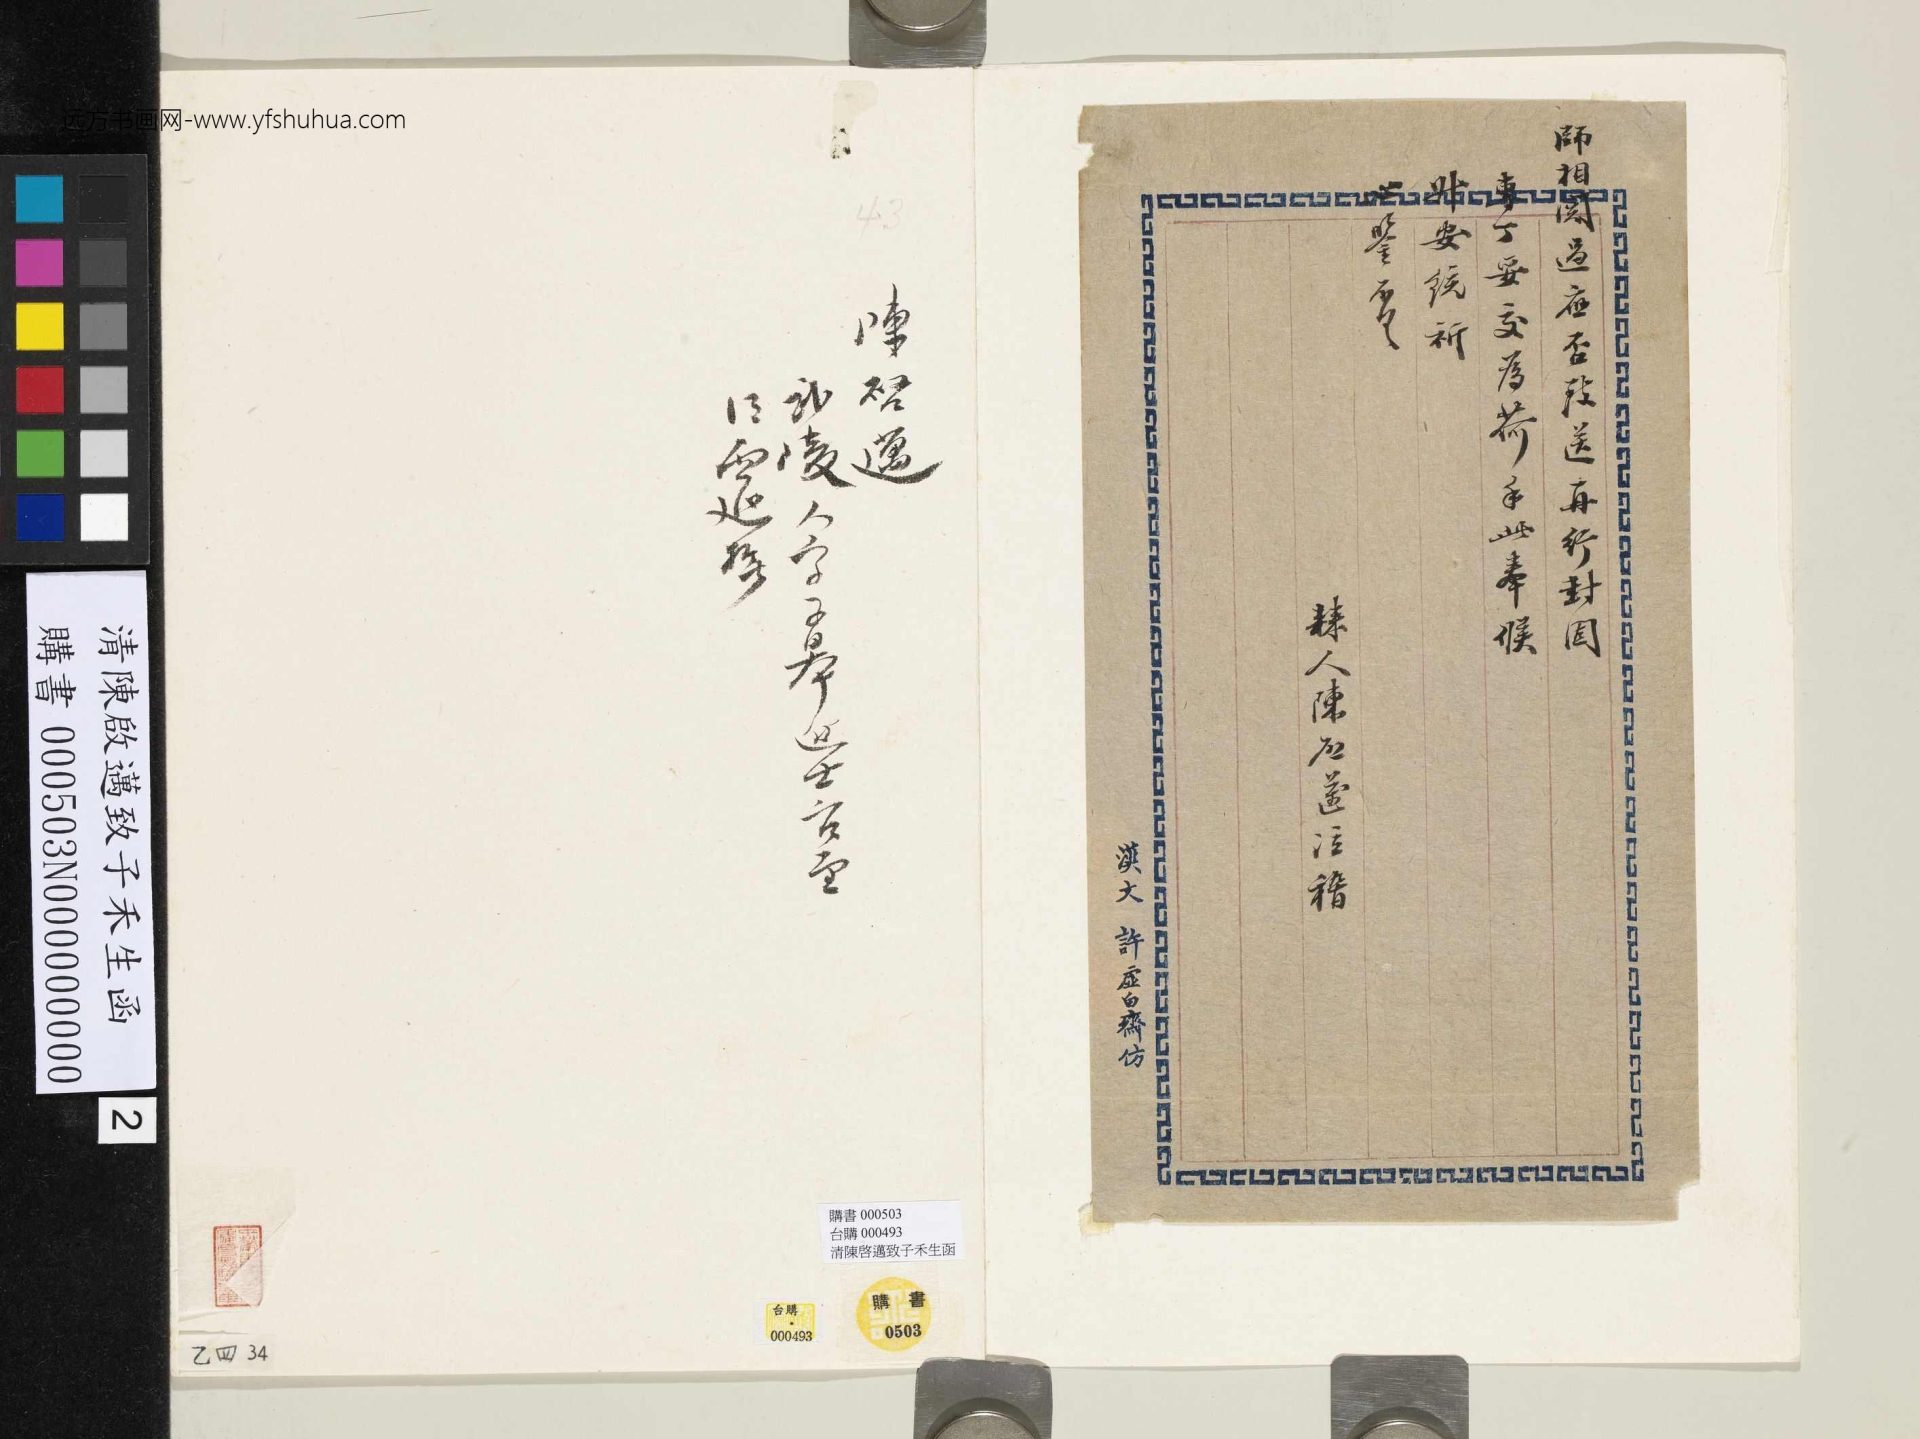 師相閱過應否致送再行封固
專丁妥交為荷手此奉候
升安統祈
鑒
棣人陳啟邁泣稽
漢文 許虛白齋仿
陳啓邁
武陵人字子皋進士官至
江西巡撫
43
远方书画网-www.yfshuhua.com
清陳啟邁致子禾生函
購書 000503N000000000
2
購書 000503
台購 000493
清陳啓邁致子禾生函
台購
000493
購書
0503
乙四 34